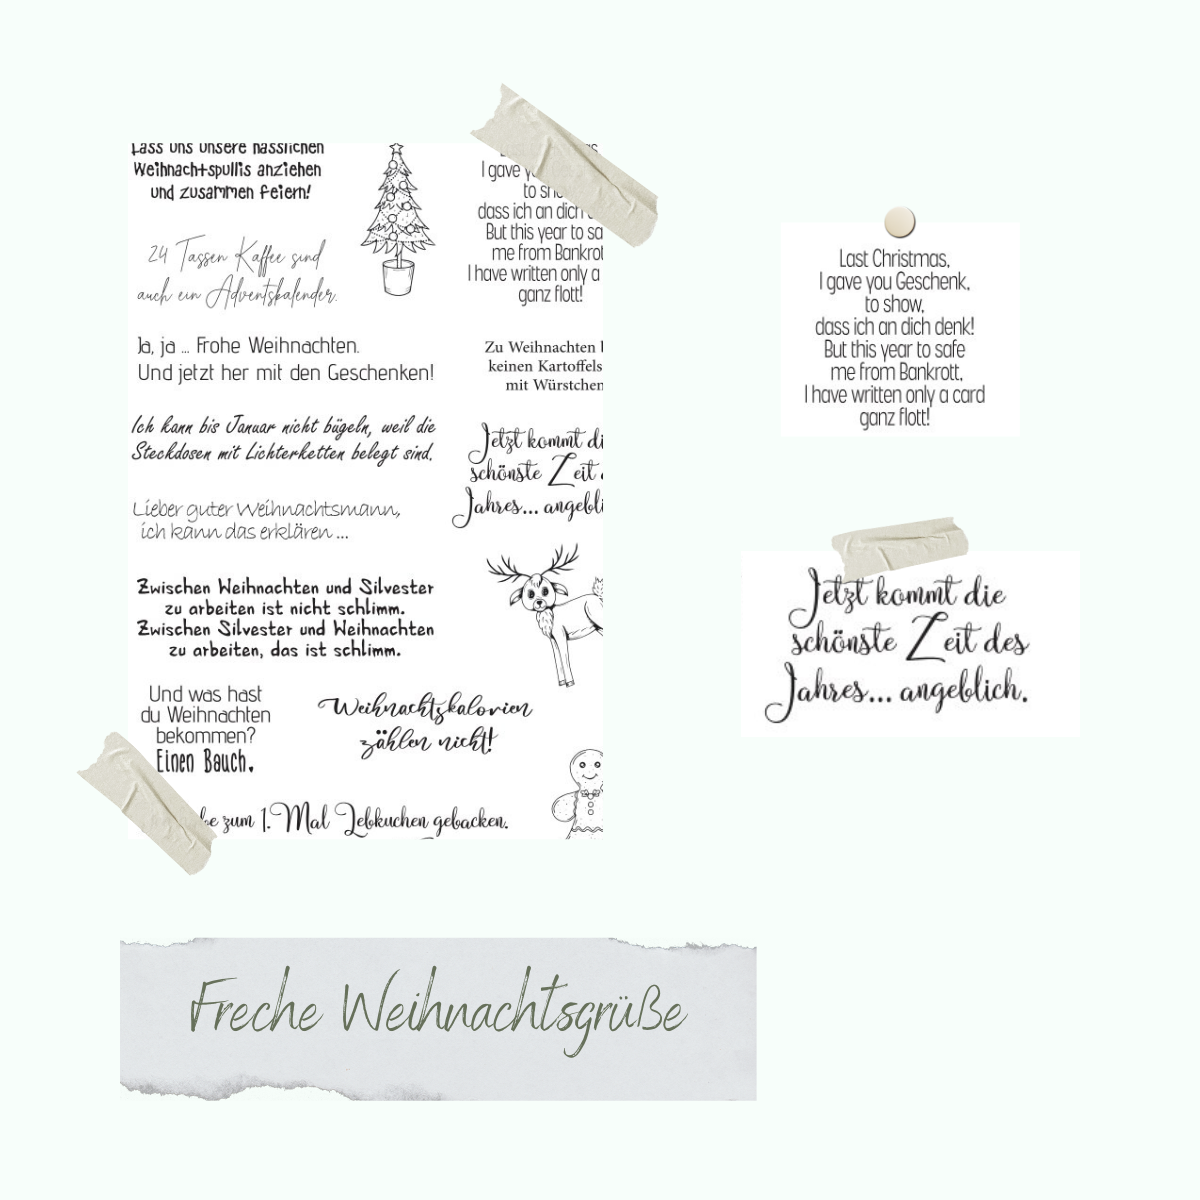 Lass uns unsere hässlichen
Weihnachtspullis anziehen
und zusammen feiern!
24 Tassen Kaffee sind
auch ein Adventskalender.
Ja, ja ... Frohe Weihnachten.
Und jetzt her mit den Geschenken!
Ich kann bis Januar nicht bügeln, weil die
Steckdosen mit Lichterketten belegt sind.
Lieber guter Weihnachtsmann,
ich kann das erklären ...
Zwischen Weihnachten und Silvester
zu arbeiten ist nicht schlimm.
Zwischen Silvester und Weihnachten
zu arbeiten, das ist schlimm.
Und was hast
du Weihnachten
bekommen?
Einen Bauch.
Weihnachtskalorien
zählen nicht!
zum 1. Mal Lebkuchen gebacken.
I gave
to
dass ich an dich
But this year to
me from
I have written only a
ganz flott!
Zu Weihnachten
keinen
mit Würstchen
Jetzt kommt
schönste Zeit
Jahres...
Last Christmas,
I gave you Geschenk,
to show,
dass ich an dich denk!
But this year to safe
me from Bankrott,
I have written only a card
ganz flott!
Jetzt kommt die
schönste Zeit des
Jahres... angeblich.
Freche Weihnachtsgrüße